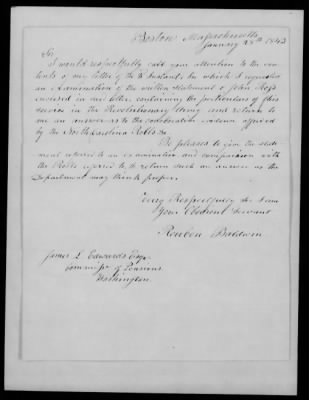 Boston Massachusetts
January 28th 1843
Sir,
I would respectfully call your attention to the con-
tents of my letter of the instant, in which I requested
an Examination of the written statement of John Ross
enclosed in my letter, containing the particulars of his
service in the Revolutionary Army and return to
me an answer as to the corroborative evidence afforded
by the North Carolina Rolls &c
Be pleased to give the state
ment referred to an examination and comparison with
the Rolls referred to & return such an answer as the
Department may think proper.
Very Respectfully Sir I am
Your Obedient Servant
Reuben Baldwin
James L Edwards Esqr
Commissr of Pensions
Washington